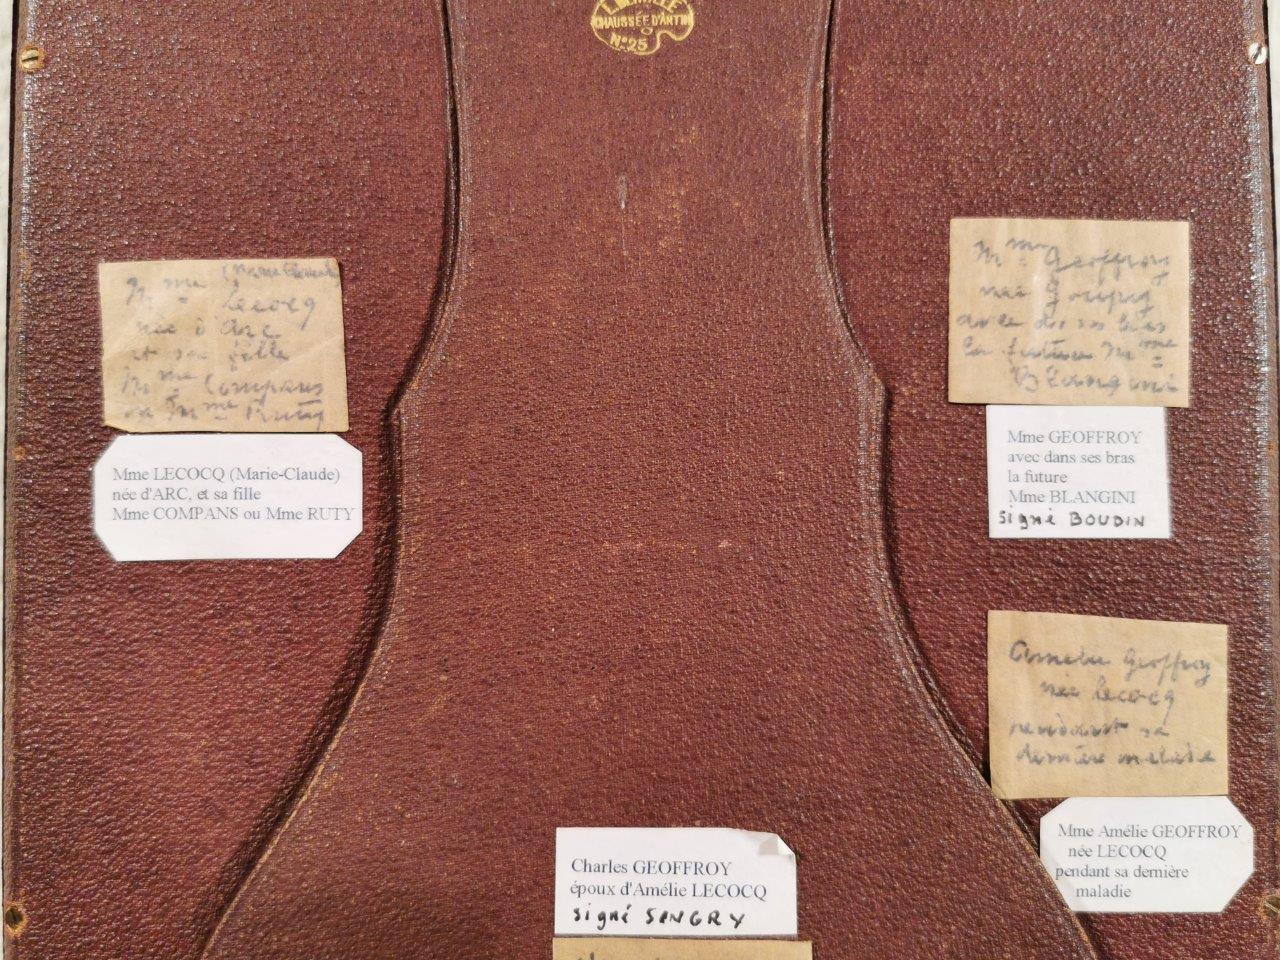 CHAUSSÉE D'ANTIN
N° 25
Mme
Lecocq
née d'Arc
et sa fille
Mme Compans
ou Mme Ruty
Mme LECOCQ (Marie-Claude)
née d'ARC, et sa fille
Mme COMPANS ou Mme RUTY
Mme Geoffroy
née
avec dans ses bras
la future Mme
Blangini
Mme GEOFFROY
avec dans ses bras
la future
Mme BLANGINI
signé BOUDIN
Amélie Geoffroy
née Lecocq
pendant sa
dernière maladie
Mme Amélie GEOFFROY
née LECOCQ
pendant sa dernière
maladie
Charles GEOFFROY
époux d'Amélie LECOCQ
signé SINGRY